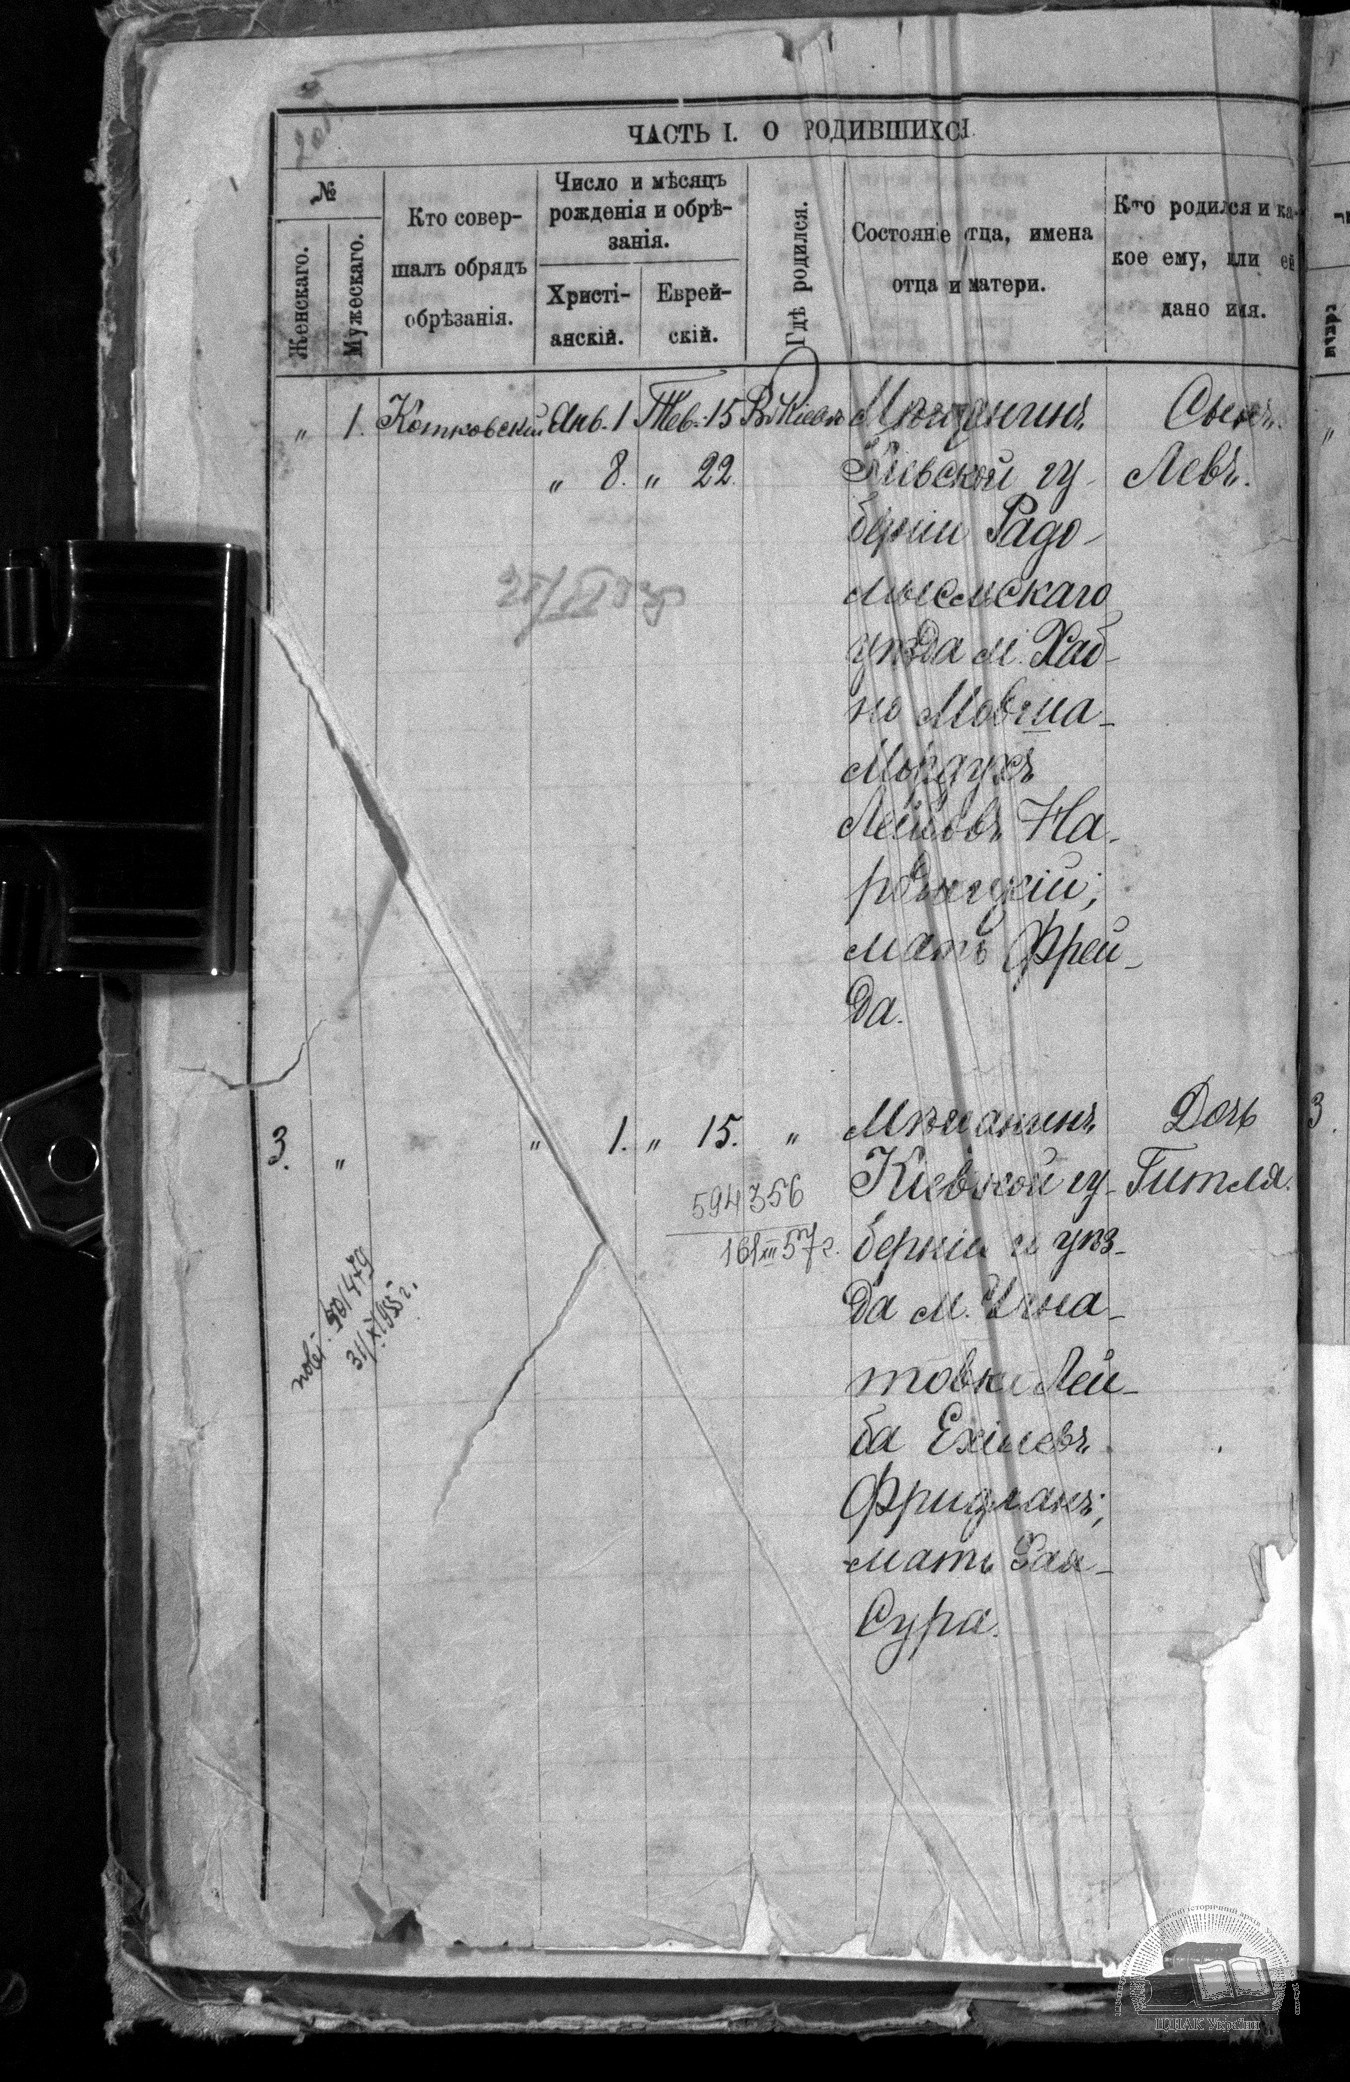 ЧАСТЬ I. О РОДИВШИХСЯ.
№
Женскаго.
Мужескаго.
Кто совер-
шалъ обрядъ
обрѣзанія.
Число и мѣсяцъ
рожденія и обрѣ-
занія.
Христі-
анскій.
Еврей-
скій.
Гдѣ родился.
Состояніе отца, имена
отца и матери.
Кто родился и ка-
кое ему, или ей
дано имя.
„ 1. Котковскій Янв. 1 Тев. 15 Въ Кіевѣ Мѣщанинъ Сынъ
„ 8. „ 22. Кіевской гу- Левъ.
берніи Радо-
мысльскаго
уѣзда м. Хаб-
но Мовша-
Мордухъ
Лейбовъ На-
родицкій;
мать Фрей-
да.
3. „ „ 1. „ 15. „ Мѣщанинъ Дочь 3.
Кіевской гу- Гитля.
594356
берніи и уѣз-
16/XII 57г.
да м. Игна-
товки Лей-
ба Ехілевъ
Фридманъ;
мать Хая-
Сура.
50/479
31/XI 1955 г.
ЦДІАК України